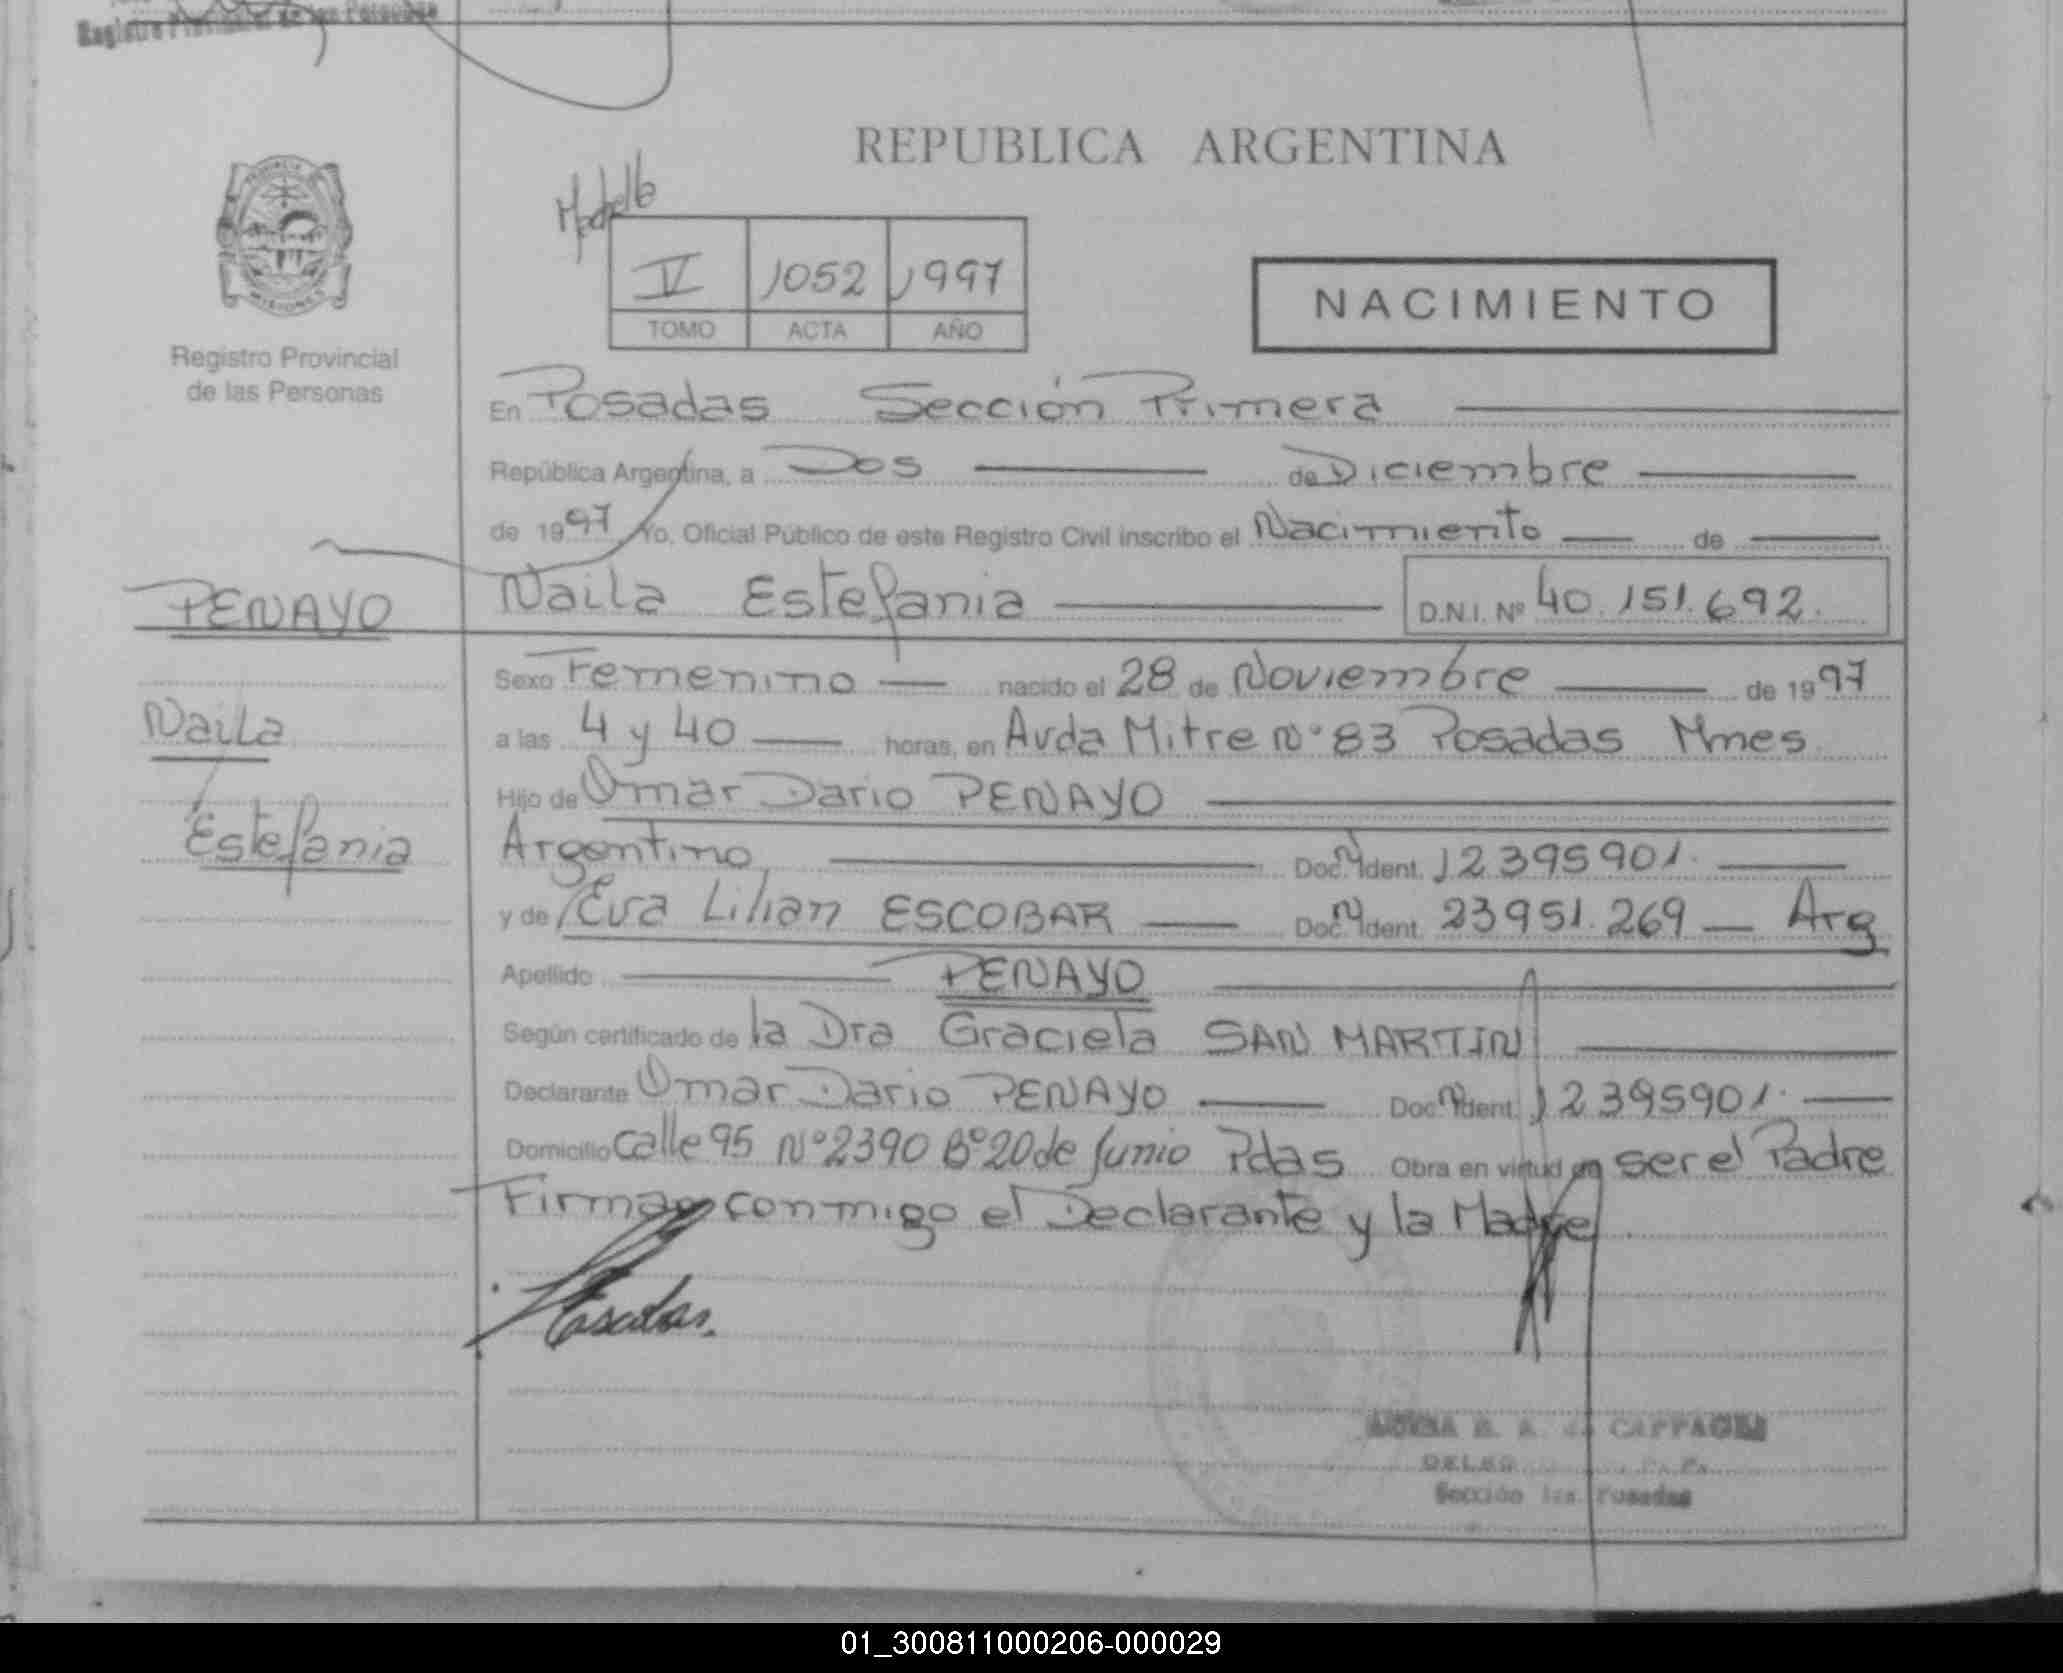 Registro Provincial de las Personas
REPUBLICA ARGENTINA
PROVINCIA
MISIONES
V 1052 1997
TOMO ACTA AÑO
NACIMIENTO
Registro Provincial
de las Personas
En Posadas Sección Primera
República Argentina, a Dos de Diciembre
de 1997 Yo, Oficial Público de este Registro Civil inscribo el Nacimiento de
PENAYO
Naila Estefania D.N.I. Nº 40.151.692.
Sexo Femenino nacido el 28 de Noviembre de 1997
Naila
a las 4 y 40 horas, en Avda Mitre Nº 83 Posadas Mnes
Hijo de Omar Dario PENAYO
Estefania
Argentino Doc. N Ident. 12395901.
y de Eva Lilian ESCOBAR Doc. N Ident. 23951.269 Arg
Apellido PENAYO
Según certificado de la Dra Graciela SAN MARTIN
Declarante Omar Dario PENAYO Doc. N Ident. 12395901.
Domicilio Calle 95 Nº 2390 Bº 20 de Junio Pdas Obra en virtud de ser el Padre
Firman conmigo el Declarante y la Madre
Sección 1ra. Posadas
01_300811000206-000029